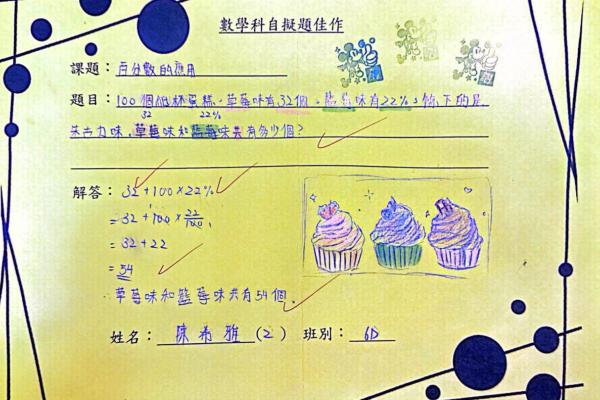 數學科自擬題佳作
課題：百分數的應用
題目：100個紙杯蛋糕，草莓味有32個，藍莓味有22%，餘下的是
32 22%
朱古力味，草莓味和藍莓味共有多少個？
解答：32+100×22%
=32+100×22/100
=32+22
=54
草莓味和藍莓味共有54個。
姓名：陳希雅(2) 班別：6D